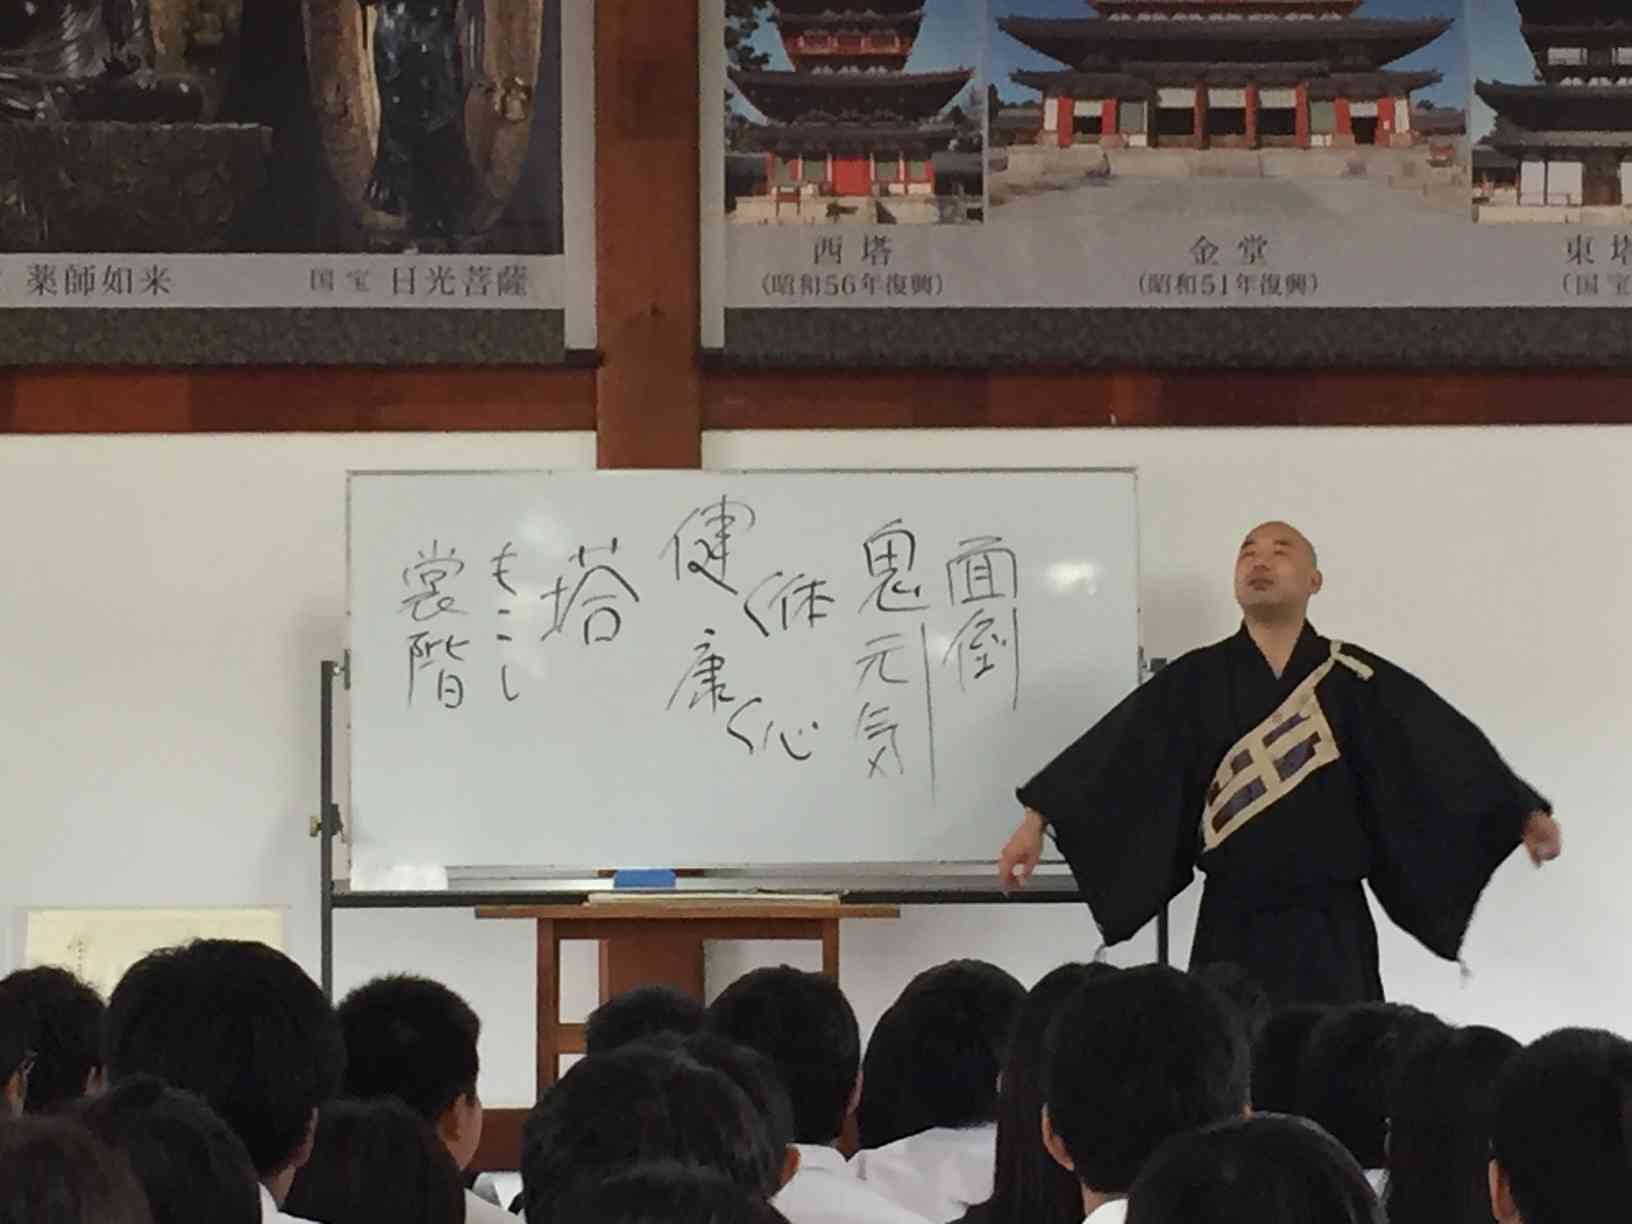 薬師如来
国宝 日光菩薩
西塔
(昭和56年復興)
金堂
(昭和51年復興)
東塔
(国宝
面倒
鬼
元気
健
く体
康
く心
塔
もこし
裳階